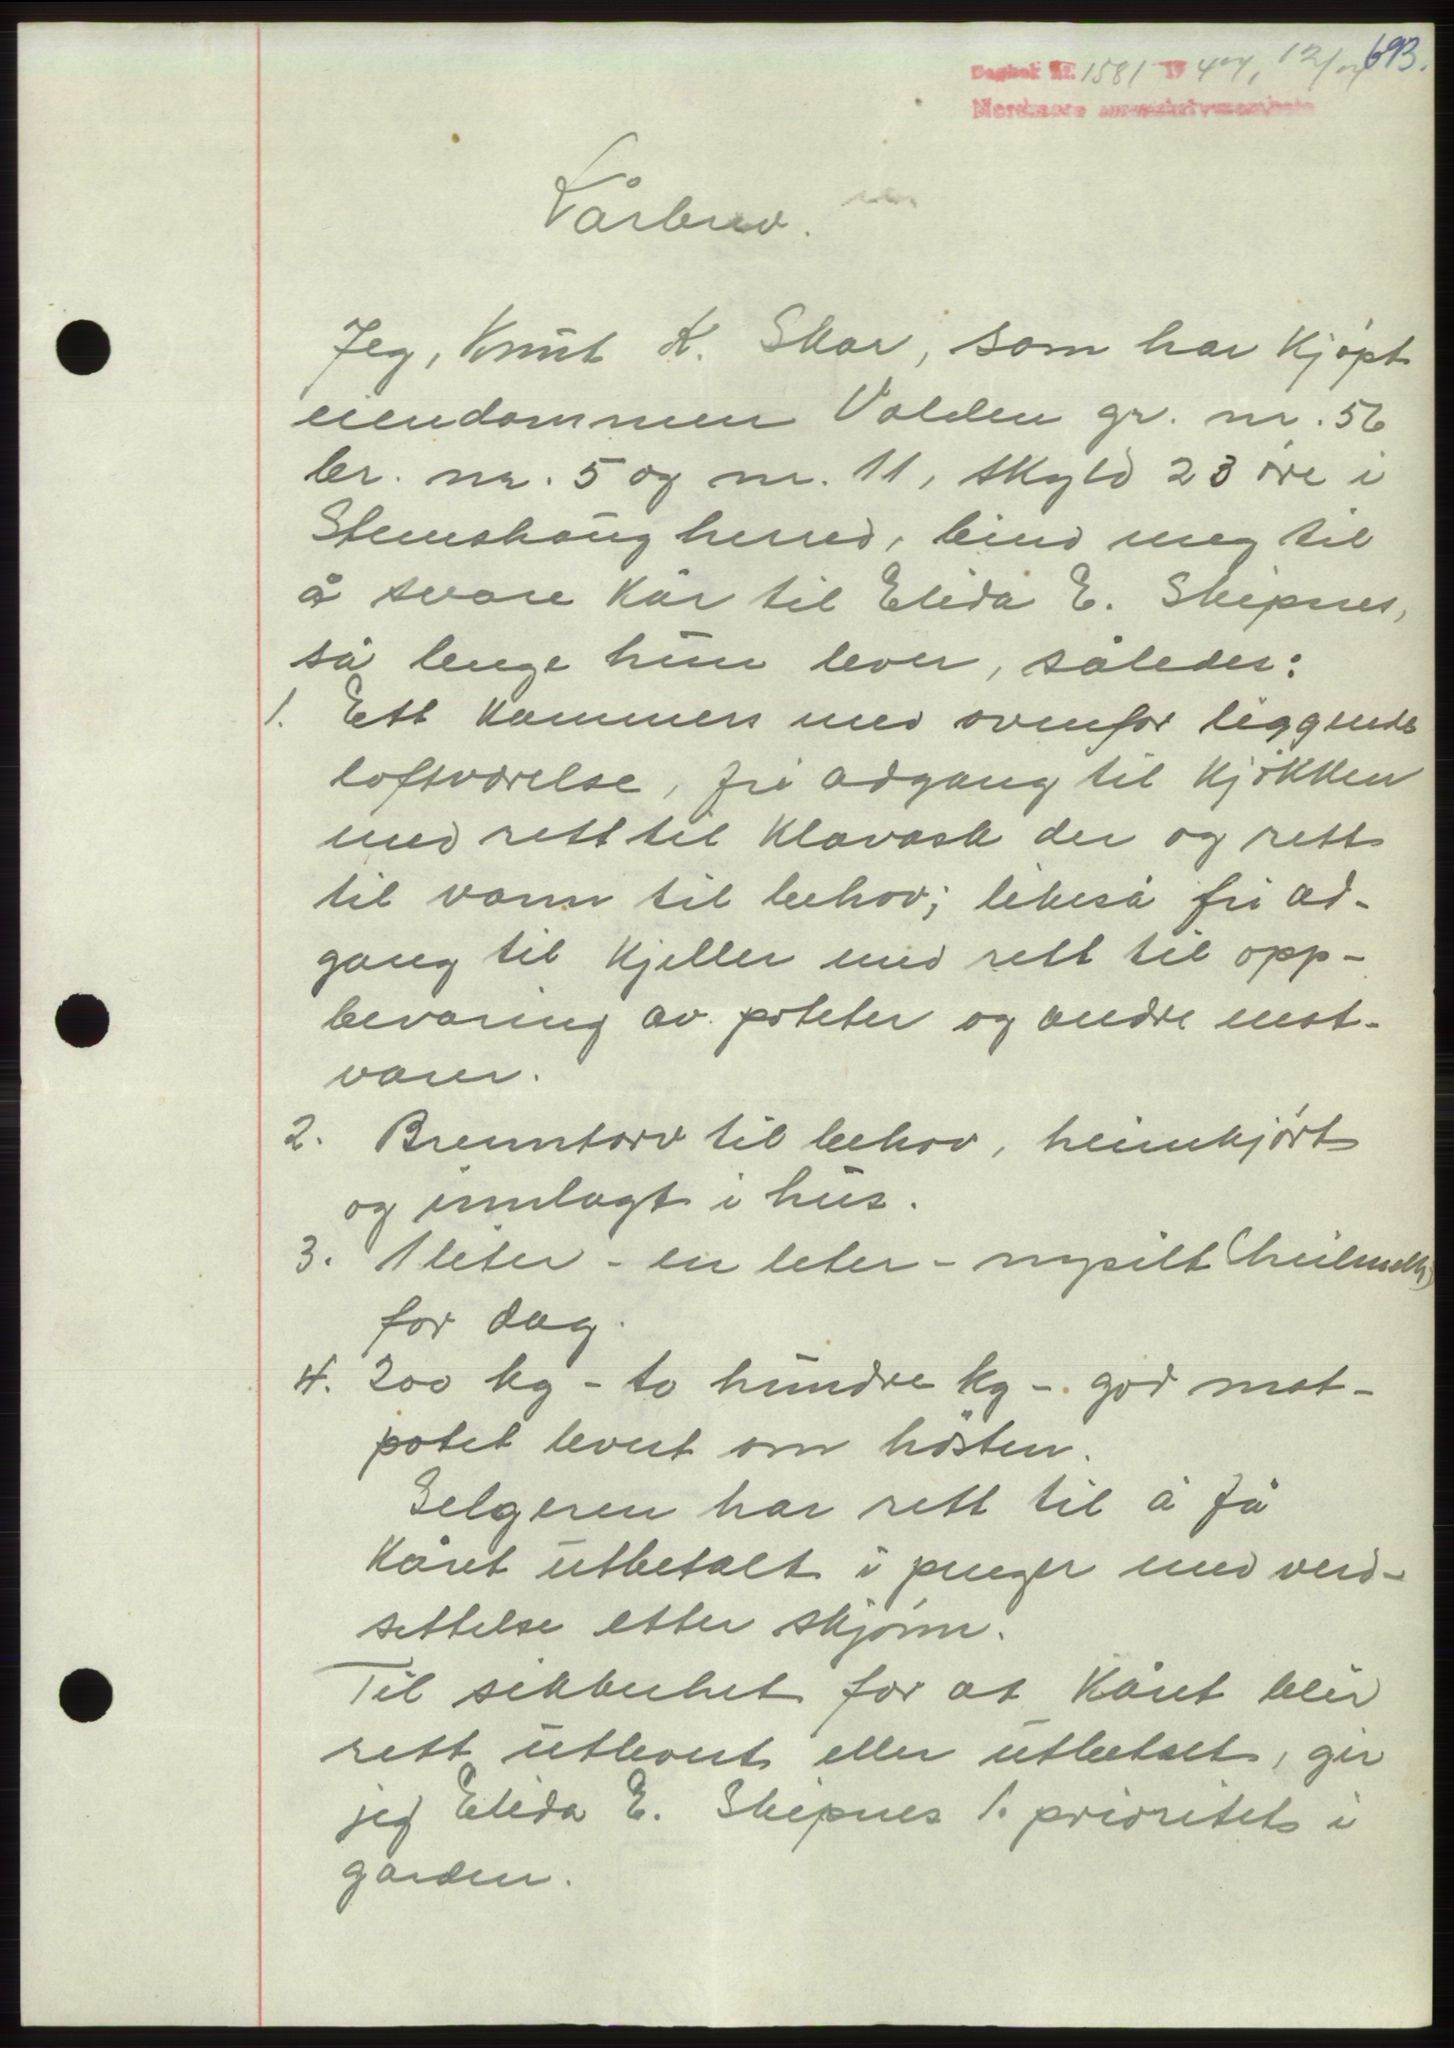 693.
Dagbok nr. 1581 19 47, 12/7
Nordmøre sorenskriverembete
Kårbrev.
Jeg, Knut K. Skar, som har kjøpt
eiendommen Valden gr. nr. 56
br. nr. 5 og nr. 11, skyld 23 øre i
Stemshaug herred, bind meg til
å svare kår til Elida E. Skipnes,
så lenge hun lever, således:
1. Ett kammers med ovenfor liggende
loftværelse, fri adgang til kjøkken
med rett til klavask der og rett
til vann til behov; likeså fri ad-
gang til kjeller med rett til opp-
bevaring av poteter og andre mat-
varer.
2. Brenntorv til behov, heimkjørt
og innlagt i hus.
3. 1 liter - en liter - nysilt (heilmelk)
for dag.
4. 200 kg - to hundre kg - god mat-
potet levert om høsten.
Selgeren har rett til å få
kåret utbetalt i penger med verd-
settelse etter skjønn.
Til sikkerhet for at kåret blir
rett utlevert eller utbetalt, gir
jeg Elida E. Skipnes 1. prioritet i
garden.